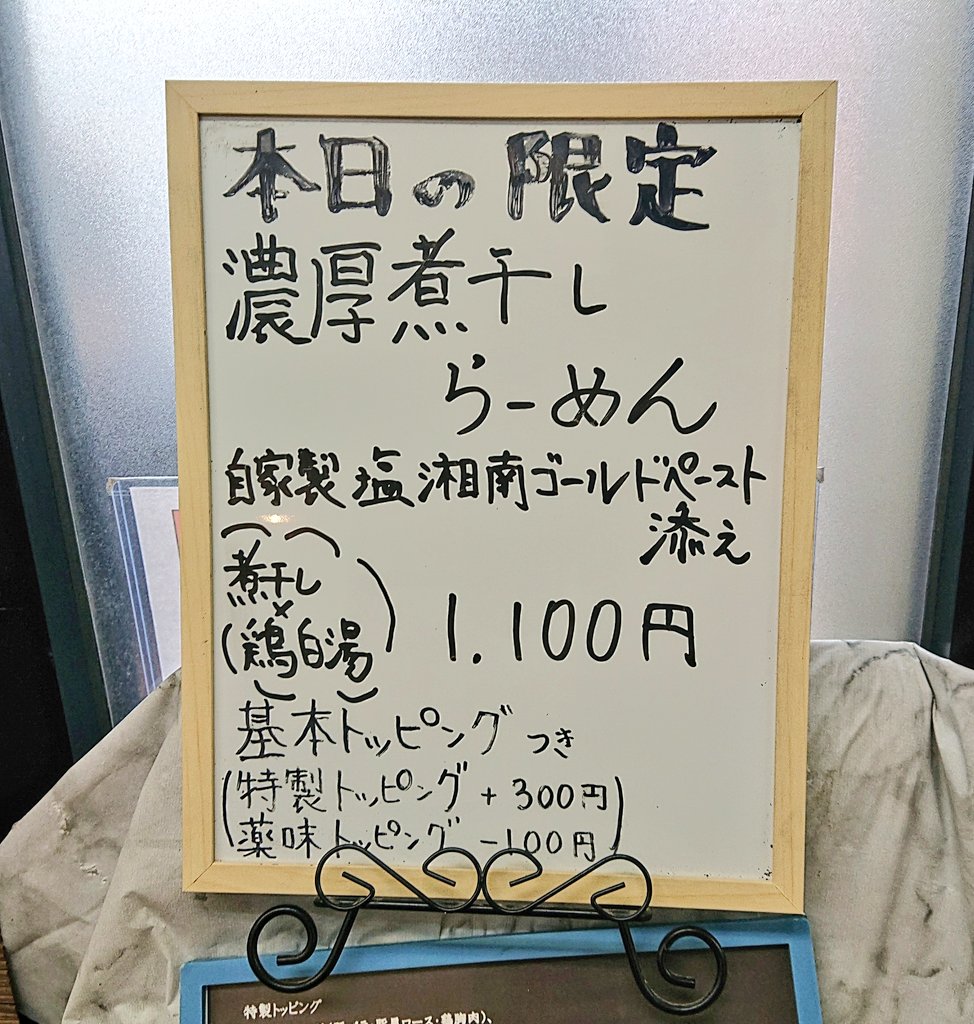 本日の限定
濃厚煮干し
らーめん
自家製 塩 湘南ゴールドペースト
添え
煮干し
×
(鶏白湯)
1.100円
基本トッピングつき
(特製トッピング + 300円
薬味トッピング -100円)
特製トッピング
ロース・鶏胸肉)、